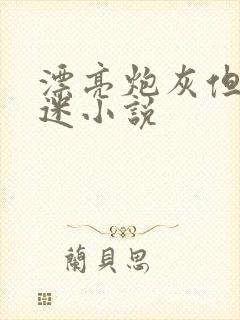 漂亮炮灰但
迷小説
蘭貝思